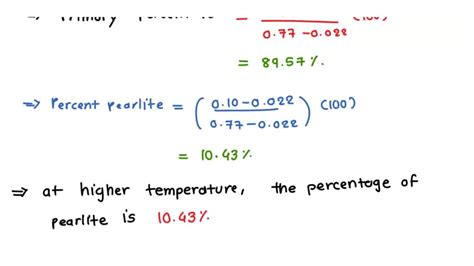 = (100)
0.77 - 0.022
= 89.57%.
⇒ Percent pearlite = ( 0.10 - 0.022 / 0.77 - 0.022 ) (100)
= 10.43%.
⇒ at higher temperature, the percentage of
pearlite is 10.43%.